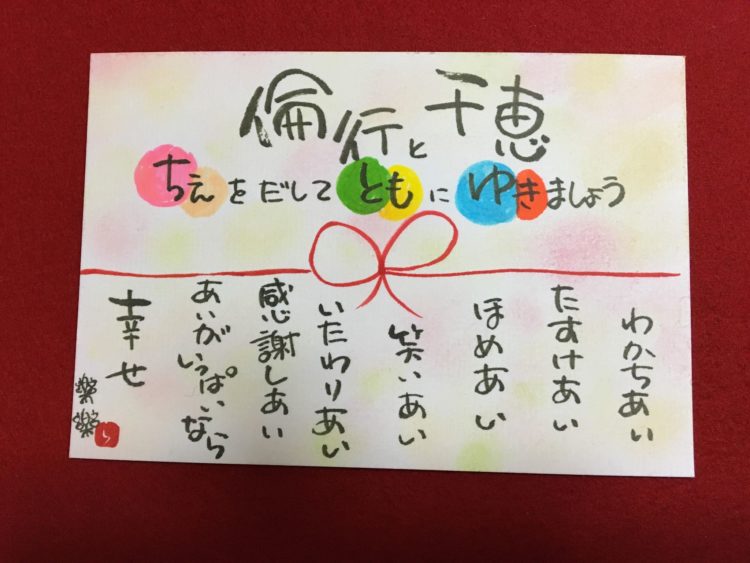 倫行と千恵
ちえをだしてともにゆきましょう
わかちあい
たすけあい
ほめあい
笑いあい
いたわりあい
感謝しあい
あいがいっぱいなら
幸せ
樂樂
ら